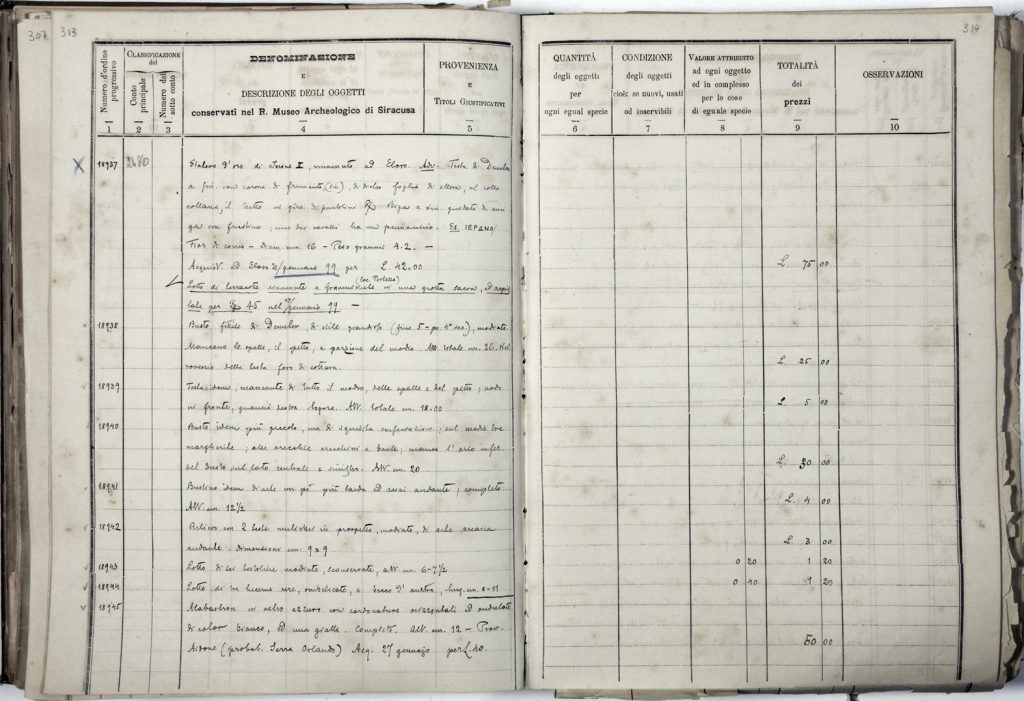 307 313
314
Numero d'ordine progressivo
CLASSIFICAZIONE del
Conto principale
Numero del sotto conto
DENOMINAZIONE
E
DESCRIZIONE DEGLI OGGETTI
conservati nel R. Museo Archeologico di Siracusa
PROVENIENZA
E
TITOLI GIUSTIFICATIVI
QUANTITÀ
degli oggetti
per
ogni egual specie
CONDIZIONE
degli oggetti
cioè: se nuovi, usati
od inservibili
VALORE ATTRIBUITO
ad ogni oggetto
ed in complesso
per le cose
di eguale specie
TOTALITÀ
dei
prezzi
OSSERVAZIONI
1 2 3 4 5 6 7 8 9 10
X 18937 2480 Statere d'oro di Ierone I, rinvenuto ad Eloro. Adv. Testa di Demeter
a sin. con corona di frumento, (sic), di dietro foglia di ellera, al collo
collana, il tutto in giro di puntolini R) Biga a sin. guidata di auri
ga con frustino; uno dei cavalli ha un pennacchio. Es. ΙΕΡΩΝΟ/
Fior di conio - Diam. mm 16 - Peso grammi 4.2. —
Acquist. ad Eloro gennaio 99 per L. 42.00 L. 75 00
(loc. Portella)
Lotto di terrecotte rinvenute a Grammichele in una grotta sacra, ed acqui
totale per 45 nel gennaio 99 —
18938 Busto fittile di Demeter, di stile grandioso (fine 5 - pr. 4º sec.), modiato.
Mancano le spalle, il petto, e porzione del modio. Alt. totale cm. 26. Nel
rovescio della testa foro di cottura. L. 25 00
18939 Testa idem, mancante di tutto il modio, delle spalle e del petto;
in fronte, guancia destra logora. Alt. totale cm. 18.00 L. 5 00
18940 Busto idem più piccolo, ma di squisita conservazione; sul modio tre
margherite; alle orecchie orecchini a manca l'orlo infer.
del busto sul lato centrale e sinistro. Alt. cm. 20 L. 30 00
18941 Bustino idem di arte un pò più tarda ed assai andante; completo
Alt. cm. 12 1/2 L. 4 00
18942 Rilievo con 2 teste muliebri in prospetto, modiato, di arte arcaica
andante. Dimensioni cm. 9 x 9 L. 3 00
18943 Lotto di sei testoline modiate, sconservate, alt. cm. 6-7 1/2 0 20 1 20
18944 Lotto di tre lucerne nere, ombelicate, a becco d'ancora, lung. cm. 8-11 0 40 1 20
18945 Alabastron in vetro azzurro con cordonature orizzontali ed ondulate
di color bianco, ed una gialla. Completo. Alt. cm. 12 - Prov.
Aidone (probab. Serra Orlando) Acq. 27 gennajo per L. 40 60 00